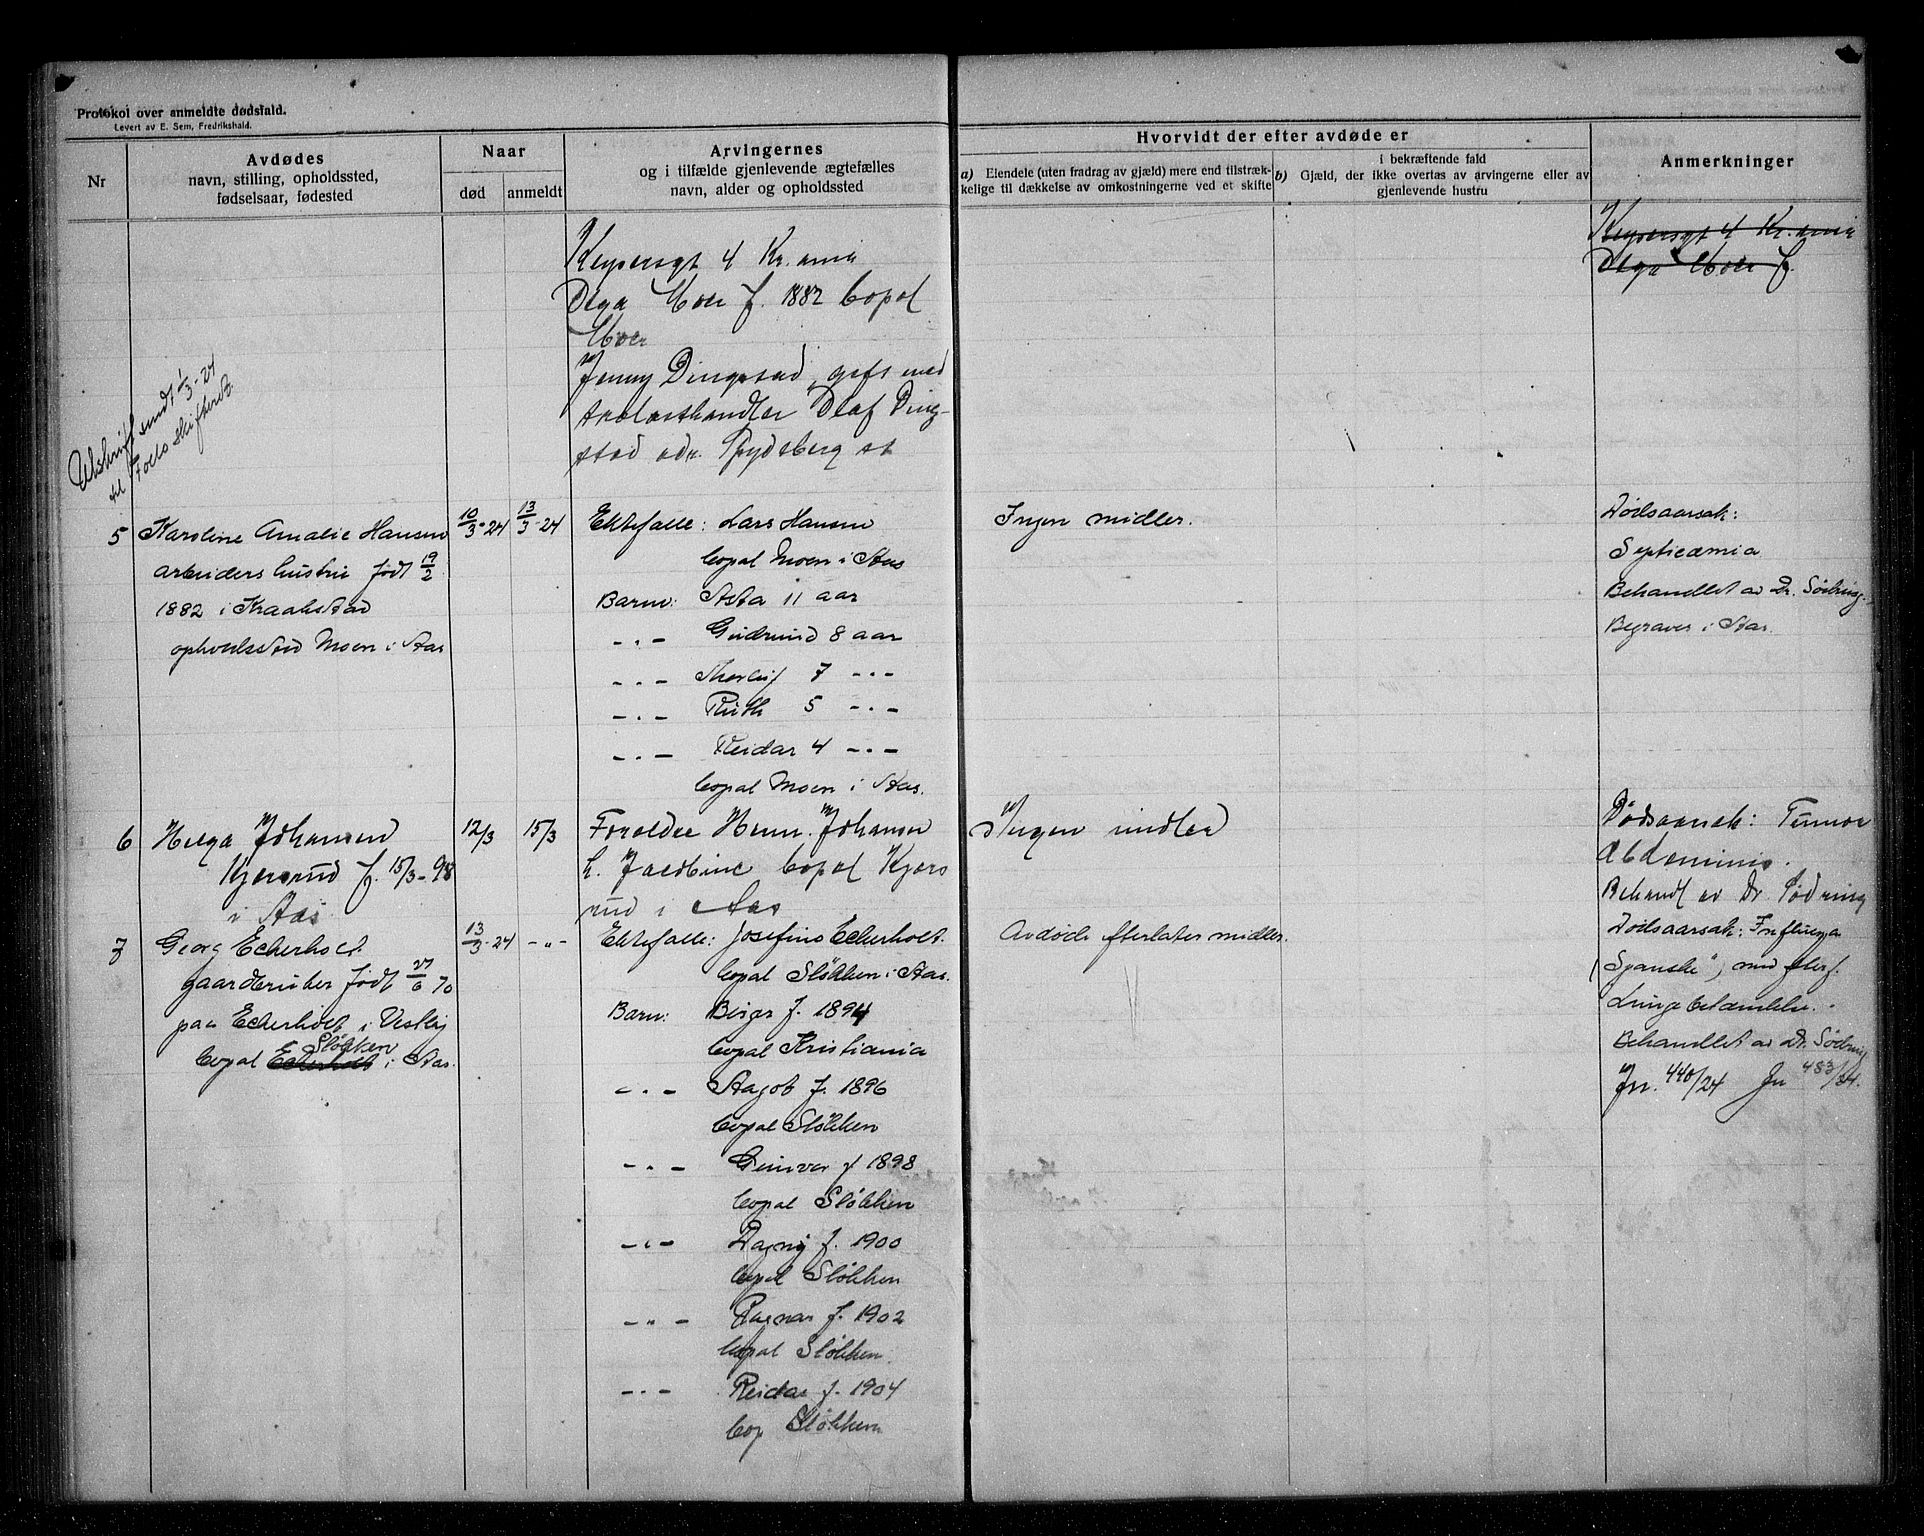 Protokol over anmeldte dødsfald.
Levert av E. Sem, Fredrikshald.
Nr
Avdødes
navn, stilling, opholdssted,
fødselsaar, fødested
Naar
død
anmeldt
Arvingernes
og i tilfælde gjenlevende ægtefælles
navn, alder og opholdssted
Hvorvidt der efter avdøde er
a) Eiendele (uten fradrag av gjæld) mere end tilstræk-
kelige til dækkelse av omkostningerne ved et skifte
i bekræftende fald
b) Gjæld, der ikke overtas av arvingerne eller av
gjenlevende hustru
Anmerkninger
Keysersgt 4 Kr.ania
Olga Moer f. 1882 bopæl
Moer
Jenny Dingstad, gift med
trælasthandler Olaf Ding-
stad adr. Spydeberg st
Keysersgt 4 Kr.ania
Olga Moer f.
Utskrift sendt 1/3-24
til Follo skifterett
5 Karoline Amalie Hansen
arbeiders hustru født 19/2
1882 i Kraakstad
opholdssted Moen i Aas
10/3-24
13/3-24
Ektefælle: Lars Hansen
bopæl Moen i Aas
Barn: Asta 11 aar
-"- Gudrund 8 aar
-"- Thorleif 7 -"-
-"- Ruth 5 -"-
-"- Reidar 4 -"-
bopæl Moen i Aas.
Ingen midler.
Dødsaarsak:
Septicæmia
Behandlet av Dr. Sødring.
Begraves i Aas.
6 Helga Johansen
Kjærsrud f. 15/3-98
i Aas
12/3
15/3
Foreldre Henr. Johansen
h. Jacobine bopæl Kjærs
rud i Aas
Ingen midler
Dødsaarsak: Tumor
Abdominis.
Behandl av Dr. Sødring
7 Georg Eckerholt
gaardbruker født 27/6 70
paa Eckerholt i Vestby
Støkken
bopæl Eckerholt i Aas.
13/3-24
-"-
Ektefælle: Josefine Eckerholt.
bopæl Støkken i Aas.
Barn: Birger f. 1894
bopæl Kristiania
-"- Aagot f. 1896
bopæl Støkken
-"- Gunvor f 1898
bopæl Støkken
-"- Dagny f. 1900
bopæl Støkken
-"- Ragnar f. 1902
bopæl Støkken.
-"- Reidar f. 1904
bop Støkken
Avdøde efterlater midler.
Dødsaarsak: Influenza
(Spanske") med efterf.
Lungebetændelse.
Behandlet av Dr. Sødring
Jn. 440/24 Jn 483/24.